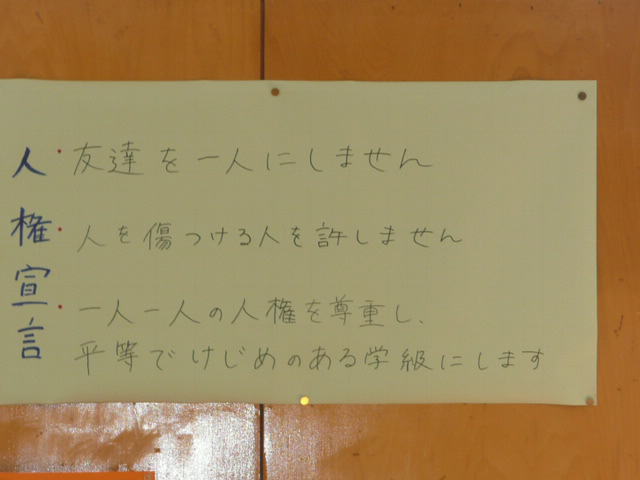 人権宣言
・友達を一人にしません
・人を傷つける人を許しません
・一人一人の人権を尊重し、
平等でけじめのある学級にします